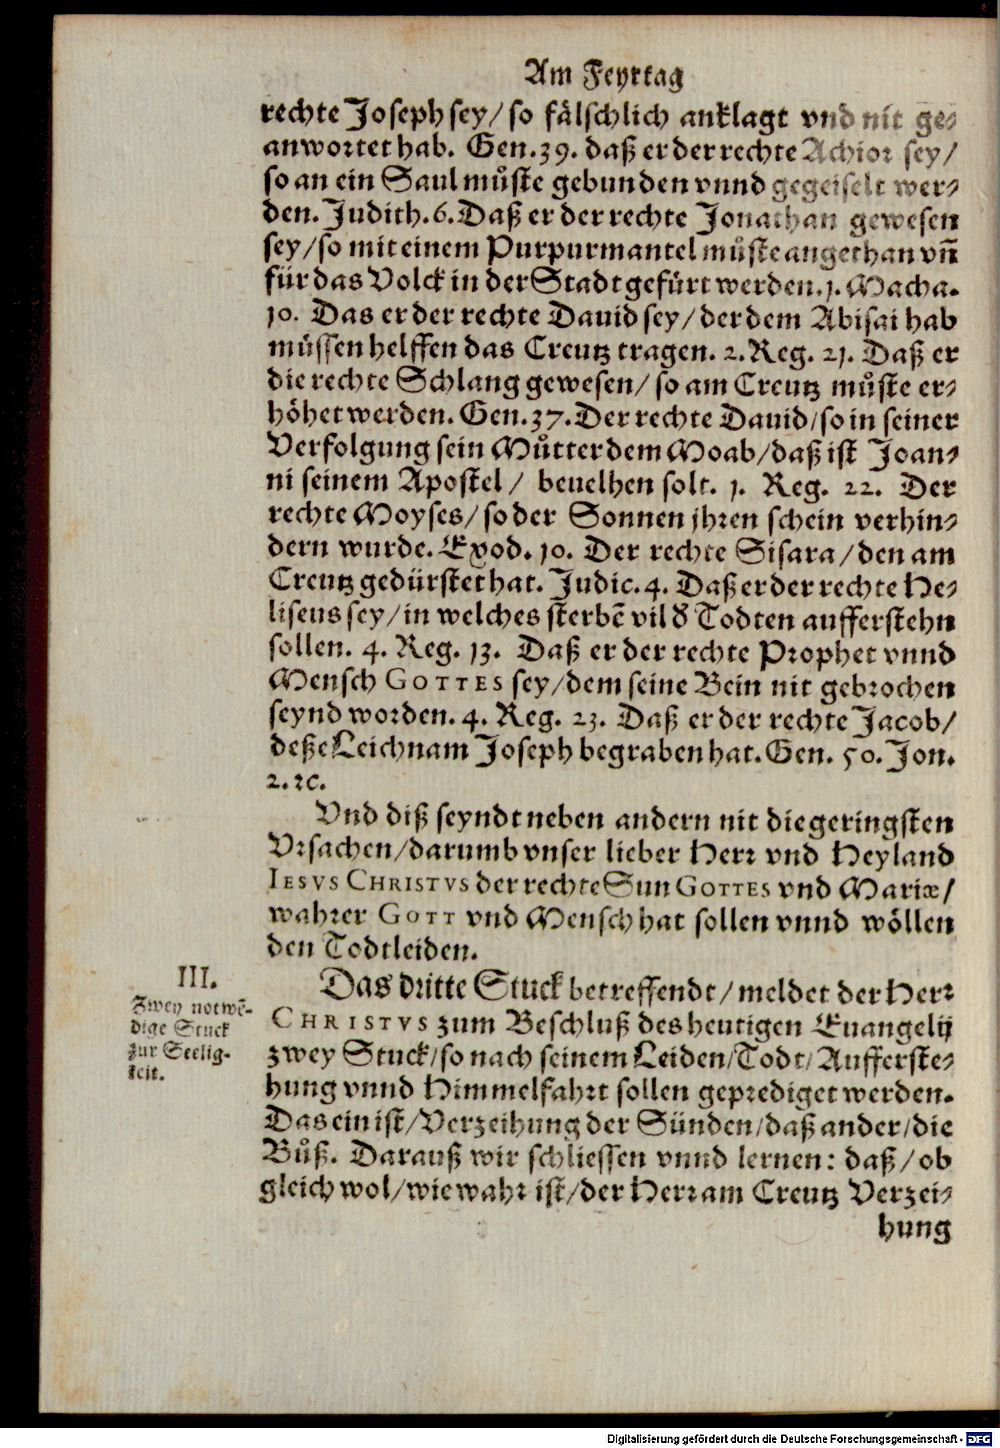 Am Feyrtag
rechte Joseph sey/ so fälschlich anklagt vnd nit ge-
anwortet hab. Gen. 39. daß er der rechte Achior sey/
so an ein Saul můste gebunden vnnd gegeiselt wer-
den. Judith. 6. Daß er der rechte Jonathan gewesen
sey/ so mit einem Purpurmantel můste angethan vñ
für das Volck in der Stadt gefürt werden. 1. Macha.
10. Das er der rechte Dauid sey/ der dem Abisai hab
můssen helffen das Creutz tragen. 2. Reg. 21. Daß er
die rechte Schlang gewesen/ so am Creutz můste er-
höhet werden. Gen. 37. Der rechte Dauid/ so in seiner
Verfolgung sein Můtter dem Moab/ daß ist Joan-
ni seinem Apostel/ beuelhen solt. 1. Reg. 22. Der
rechte Moyses/ so der Sonnen jhren schein verhin-
dern wurde. Exod. 10. Der rechte Sisara/ den am
Creutz gedürstet hat. Judic. 4. Daß er der rechte He-
liseus sey/ in welches sterbẽ vil ď Todten aufferstehn
sollen. 4. Reg. 13. Daß er der rechte Prophet vnnd
Mensch GOTTES sey/ dem seine Bein nit gebrochen
seynd worden. 4. Reg. 23. Daß er der rechte Jacob/
deße Leichnam Joseph begraben hat. Gen. 50. Jon.
2. ꝛc.
Vnd diß seyndt neben andern nit die geringsten
Vrsachen/ darumb vnser lieber Herr vnd Heyland
IESVS CHRISTVS der rechte Sun GOTTES vnd Mariæ/
wahrer GOTT vnd Mensch hat sollen vnnd wöllen
den Todt leiden.
III.
Zwey notwẽ-
dige Stuck
zur Seelig-
keit.
Das dritte Stuck betreffendt/ meldet der Herr
CHRISTVS zum Beschluß des heutigen Euangelij
zwey Stuck/ so nach seinem Leiden/ Todt/ Aufferste-
hung vnnd Himmelfahrt sollen geprediget werden.
Das ein ist/ Verzeihung der Sünden/ daß ander/ die
Bůß. Darauß wir schliessen vnnd lernen: daß/ ob
gleich wol/ wie wahr ist/ der Herr am Creutz Verzei-
hung
Digitalisierung gefördert durch die Deutsche Forschungsgemeinschaft - DFG